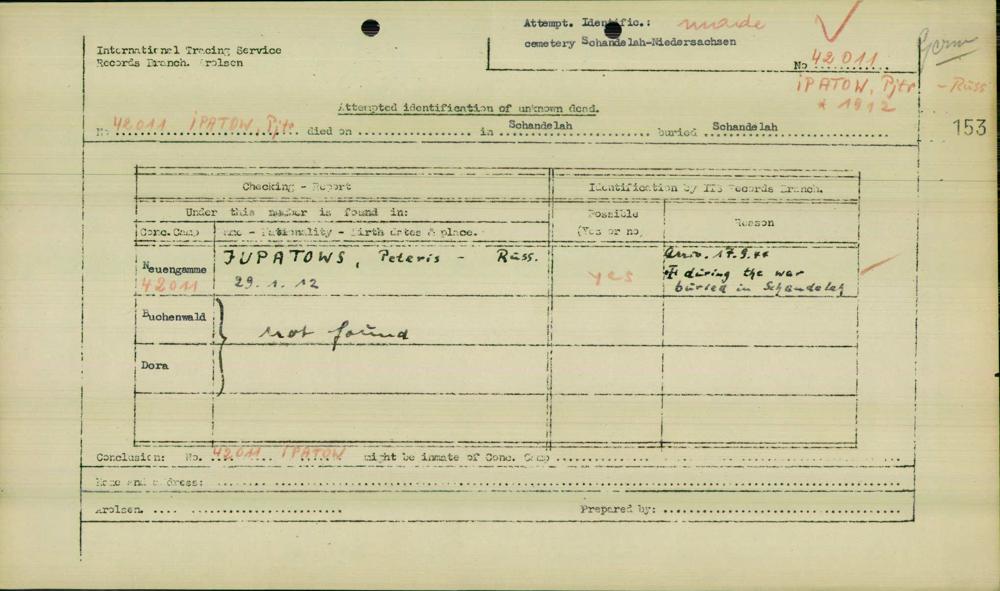 Attempt. Identific.: made
cemetery Schandelah-Niedersachsen
International Tracing Service
Records Branch. Arolsen
No 42011
IPATOW, Pjtr - Russ
* 1912
Attempted identification of unknown dead.
153
No 42011 IPATOW, Pjtr died on .......... in Schandelah buried Schandelah
Checking - Report
Identification by ITS Records Branch.
Under this number is found in:
Possible
(Yes or no)
Reason
Conc.Camp
Name - Nationality - Birth dates & place.
Neuengamme
42011
JUPATOWS, Peteris - Russ.
29.1.12
yes
during the war
buried in Schandelah
Buchenwald
not found
Dora
Conclusion: No. 42011 IPATOW might be inmate of Conc. Camp
Name and address:
Arolsen.
Prepared by: